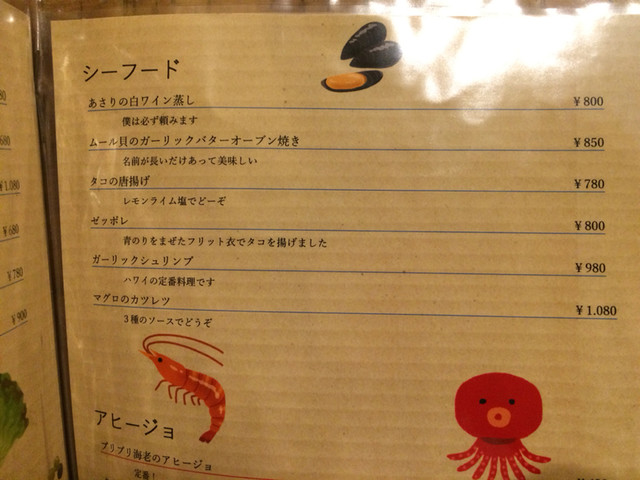 シーフード
あさりの白ワイン蒸し ¥800
僕は必ず頼みます
ムール貝のガーリックバターオーブン焼き ¥850
名前が長いだけあって美味しい
タコの唐揚げ ¥780
レモンライム塩でどーぞ
ゼッポレ ¥800
青のりをまぜたフリット衣でタコを揚げました
ガーリックシュリンプ ¥980
ハワイの定番料理です
マグロのカツレツ ¥1.080
3種のソースでどうぞ
アヒージョ
プリプリ海老のアヒージョ
定番!
80
680
¥1.080
¥680
¥780
¥900